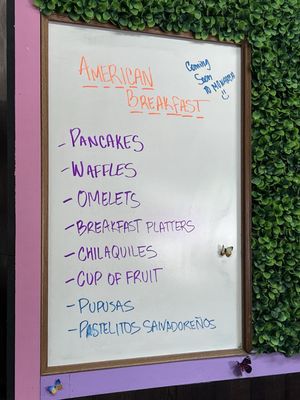 AMERICAN
BREAKFAST
Coming
Soon
TO MONARCA
- PANCAKES
- WAFFLES
- OMELETS
- BREAKFAST PLATTERS
- CHILAQUILES
- CUP OF FRUIT
- PUPUSAS
- PASTELITOS SALVADOREÑOS